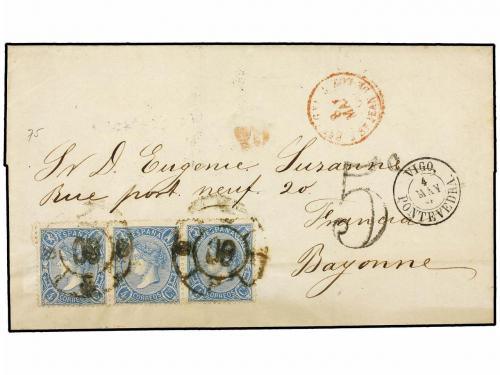 75
Sr D. Eugenie Suzanne
Rue port neuf. 20
Francia
Bayonne
5
VIGO.
4
MAY
PONTEVEDRA.
ESPAÑA ESPAÑA ESPAÑA
CORREOS CORREOS CORREOS